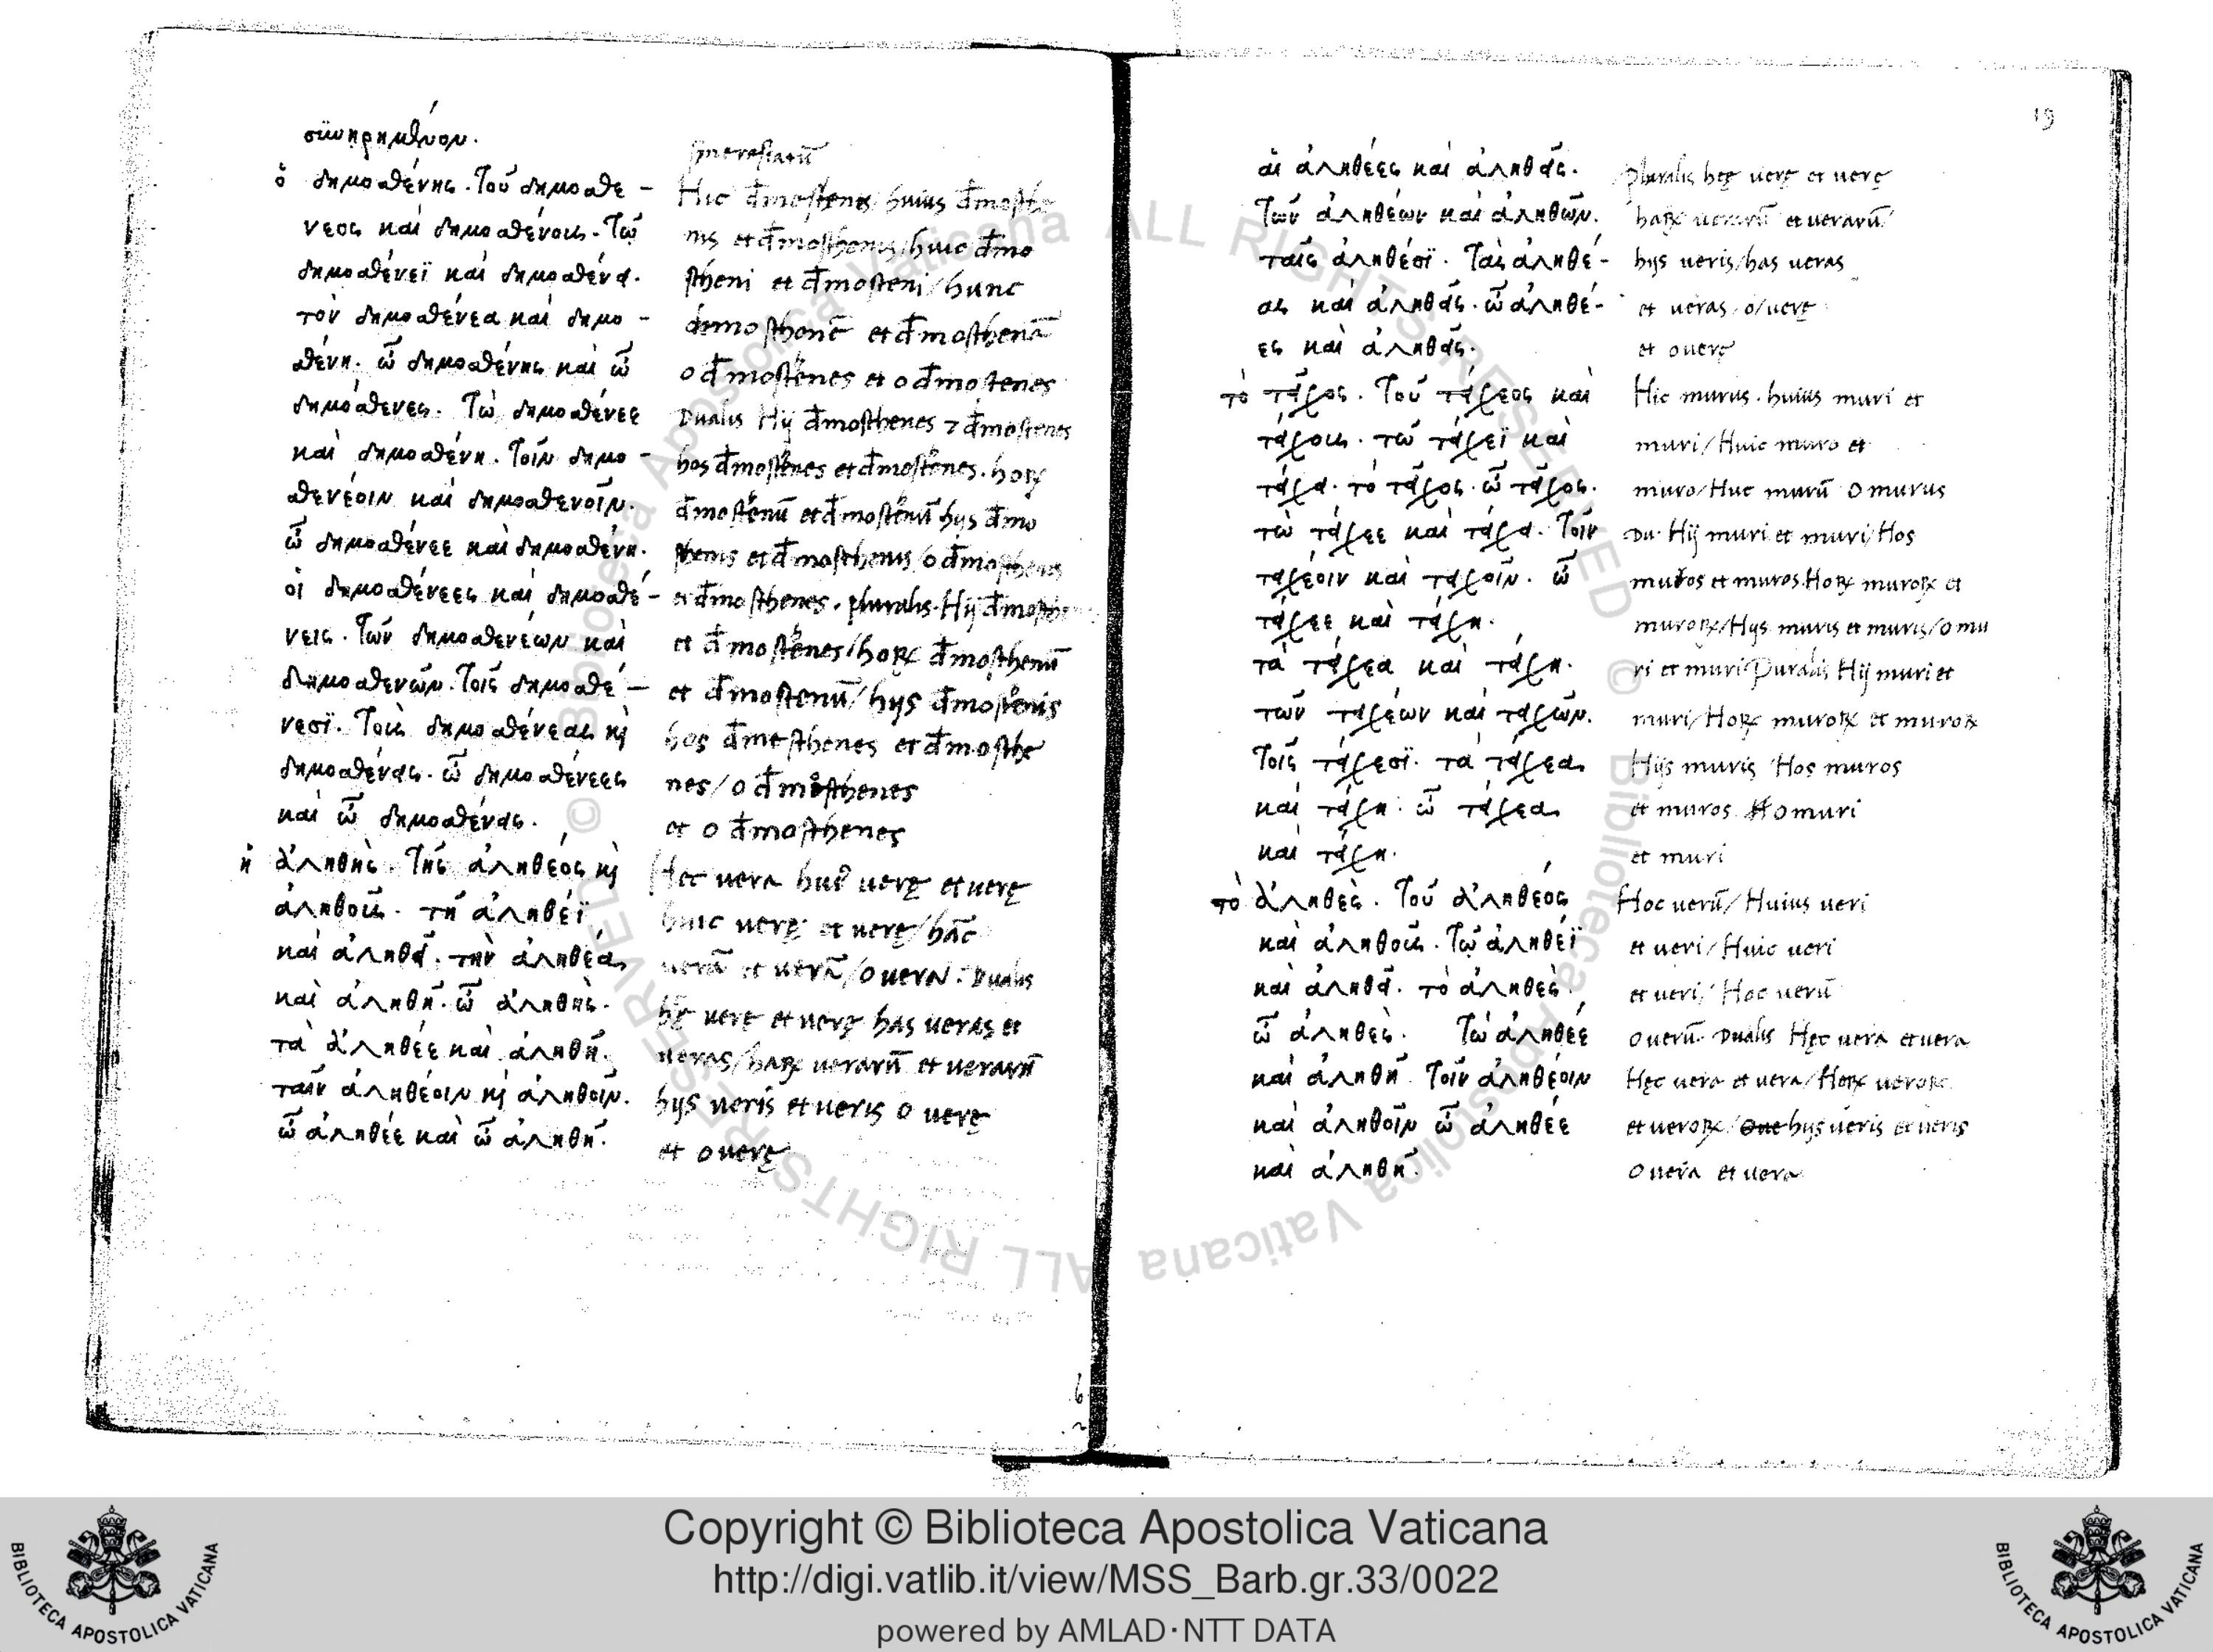 συνηρημένον.
ὁ δημοσθένης. Τοῦ δημοσθέ-
νεος καὶ δημοσθένους. Τῷ
δημοσθένεϊ καὶ δημοσθένει.
τὸν δημοσθένεα καὶ δημο-
σθένη. ὦ δημοσθένης καὶ ὦ
δημόσθενες. Τὼ δημοσθένεε
καὶ δημοσθένη. Τοῖν δημο-
σθενέοιν καὶ δημοσθενοῖν.
ὦ δημοσθένεε καὶ δημοσθένη.
οἱ δημοσθένεες καὶ δημοσθέ-
νεις. Τῶν δημοσθενέων καὶ
δημοσθενῶν. Τοῖς δημοσθέ-
νεσϊ. Τοὺς δημοσθένεας κὶ
δημοσθένεις. ὦ δημοσθένεες
καὶ ὦ δημοσθένεις.
ἡ ἀληθὴς. Τῆς ἀληθέος κὶ
ἀληθοῦς. τῇ ἀληθέϊ
καὶ ἀληθεῖ. τὴν ἀληθέα
καὶ ἀληθῆ. ὦ ἀληθὴς.
τὰ ἀληθέε καὶ ἀληθῆ.
ταῖν ἀληθέοιν κὶ ἀληθοῖν.
ὦ ἀληθέε καὶ ὦ ἀληθῆ.
Hic d̄mostenes huius d̄mosthe
nis et d̄mosthenis/huic d̄mo
stheni et d̄mosteni/hunc
demosthenē et d̄mosthenā
o d̄mostenes et o d̄mostenes
Dualis Hij d̄mosthenes 7 d̄mostenes
hos d̄mostenes et d̄mostenes. hoꝝ
d̄mostenū et d̄mostenū hys d̄mo
sthenis et d̄mosthenis/o d̄mosthenes
et d̄mosthenes. pluralis. Hij d̄mosthe
et d̄mostenes/hoꝝ d̄mosthenū
et d̄mostenū/hys d̄mostenis
hos d̄mosthenes et d̄mosthe
nes/o d̄mosthenes
et o d̄mosthenes
Hec uera hui9 uerę et uerę
huic uerę et uerę/hāc
uerā et uerā/o uera: Dualis
hę uerę et uerę has ueras et
ueras/haꝝ uerarū et uerarū
hys ueris et ueris o uerę
et o uerę
19
αἱ ἀληθέες καὶ ἀληθεῖς.
Τῶν ἀληθέων καὶ ἀληθῶν.
ταῖς ἀληθέσϊ. Τὰς ἀληθέ-
ας καὶ ἀληθεῖς. ὦ ἀληθέ-
ες καὶ ἀληθεῖς.
τὸ τεῖχος. Τοῦ τείχεος καὶ
τείχους. τῷ τείχεϊ καὶ
τείχει. τὸ τεῖχος. ὦ τεῖχος.
τὼ τείχεε καὶ τείχει. Τοῖν
τειχέοιν καὶ τειχοῖν. ὦ
τείχεε καὶ τείχη.
τὰ τείχεα καὶ τείχη.
τῶν τειχέων καὶ τειχῶν.
Τοῖς τείχεσϊ. τὰ τείχεα
καὶ τείχη. ὦ τείχεα
καὶ τείχη.
τὸ ἀληθὲς. Τοῦ ἀληθέος
καὶ ἀληθοῦς. Τῷ ἀληθέϊ
καὶ ἀληθεῖ. τὸ ἀληθὲς.
ὦ ἀληθὲς. Τὼ ἀληθέε
καὶ ἀληθῆ. Τοῖν ἀληθέοιν
καὶ ἀληθοῖν ὦ ἀληθέε
καὶ ἀληθῆ.
pluralis hęę uerę et uerę
haꝝ uerarū et uerarū
hys ueris/has ueras
et ueras o/uerę
et o uerę
Hic murus. huius muri et
muri/Huic muro et
muro/Huc murū o murus
Du. Hij muri et muri/Hos
muros et muros. Hoꝝ muroꝝ et
muroꝝ/Hys muris et muris/o mu
ri et muri Puralis Hij muri et
muri/Hoꝝ muroꝝ et muroꝝ
Hijs muris Hos muros
et muros o muri
et muri
Hoc uerū/Huius ueri
et ueri/Huic ueri
et ueri/Hoc uerū
o uerū. Dualis Hęc uera et uera
Hęc uera et uera/Hoꝝ ueroꝝ
et ueroꝝ/hys ueris et ueris
o uera et uera
Copyright © Biblioteca Apostolica Vaticana
http://digi.vatlib.it/view/MSS_Barb.gr.33/0022
powered by AMLAD·NTT DATA
BIBLIOTECA APOSTOLICA VATICANA
BIBLIOTECA APOSTOLICA VATICANA
© Biblioteca Apostolica Vaticana ALL RIGHTS RESERVED
© Biblioteca Apostolica Vaticana ALL RIGHTS RESERVED